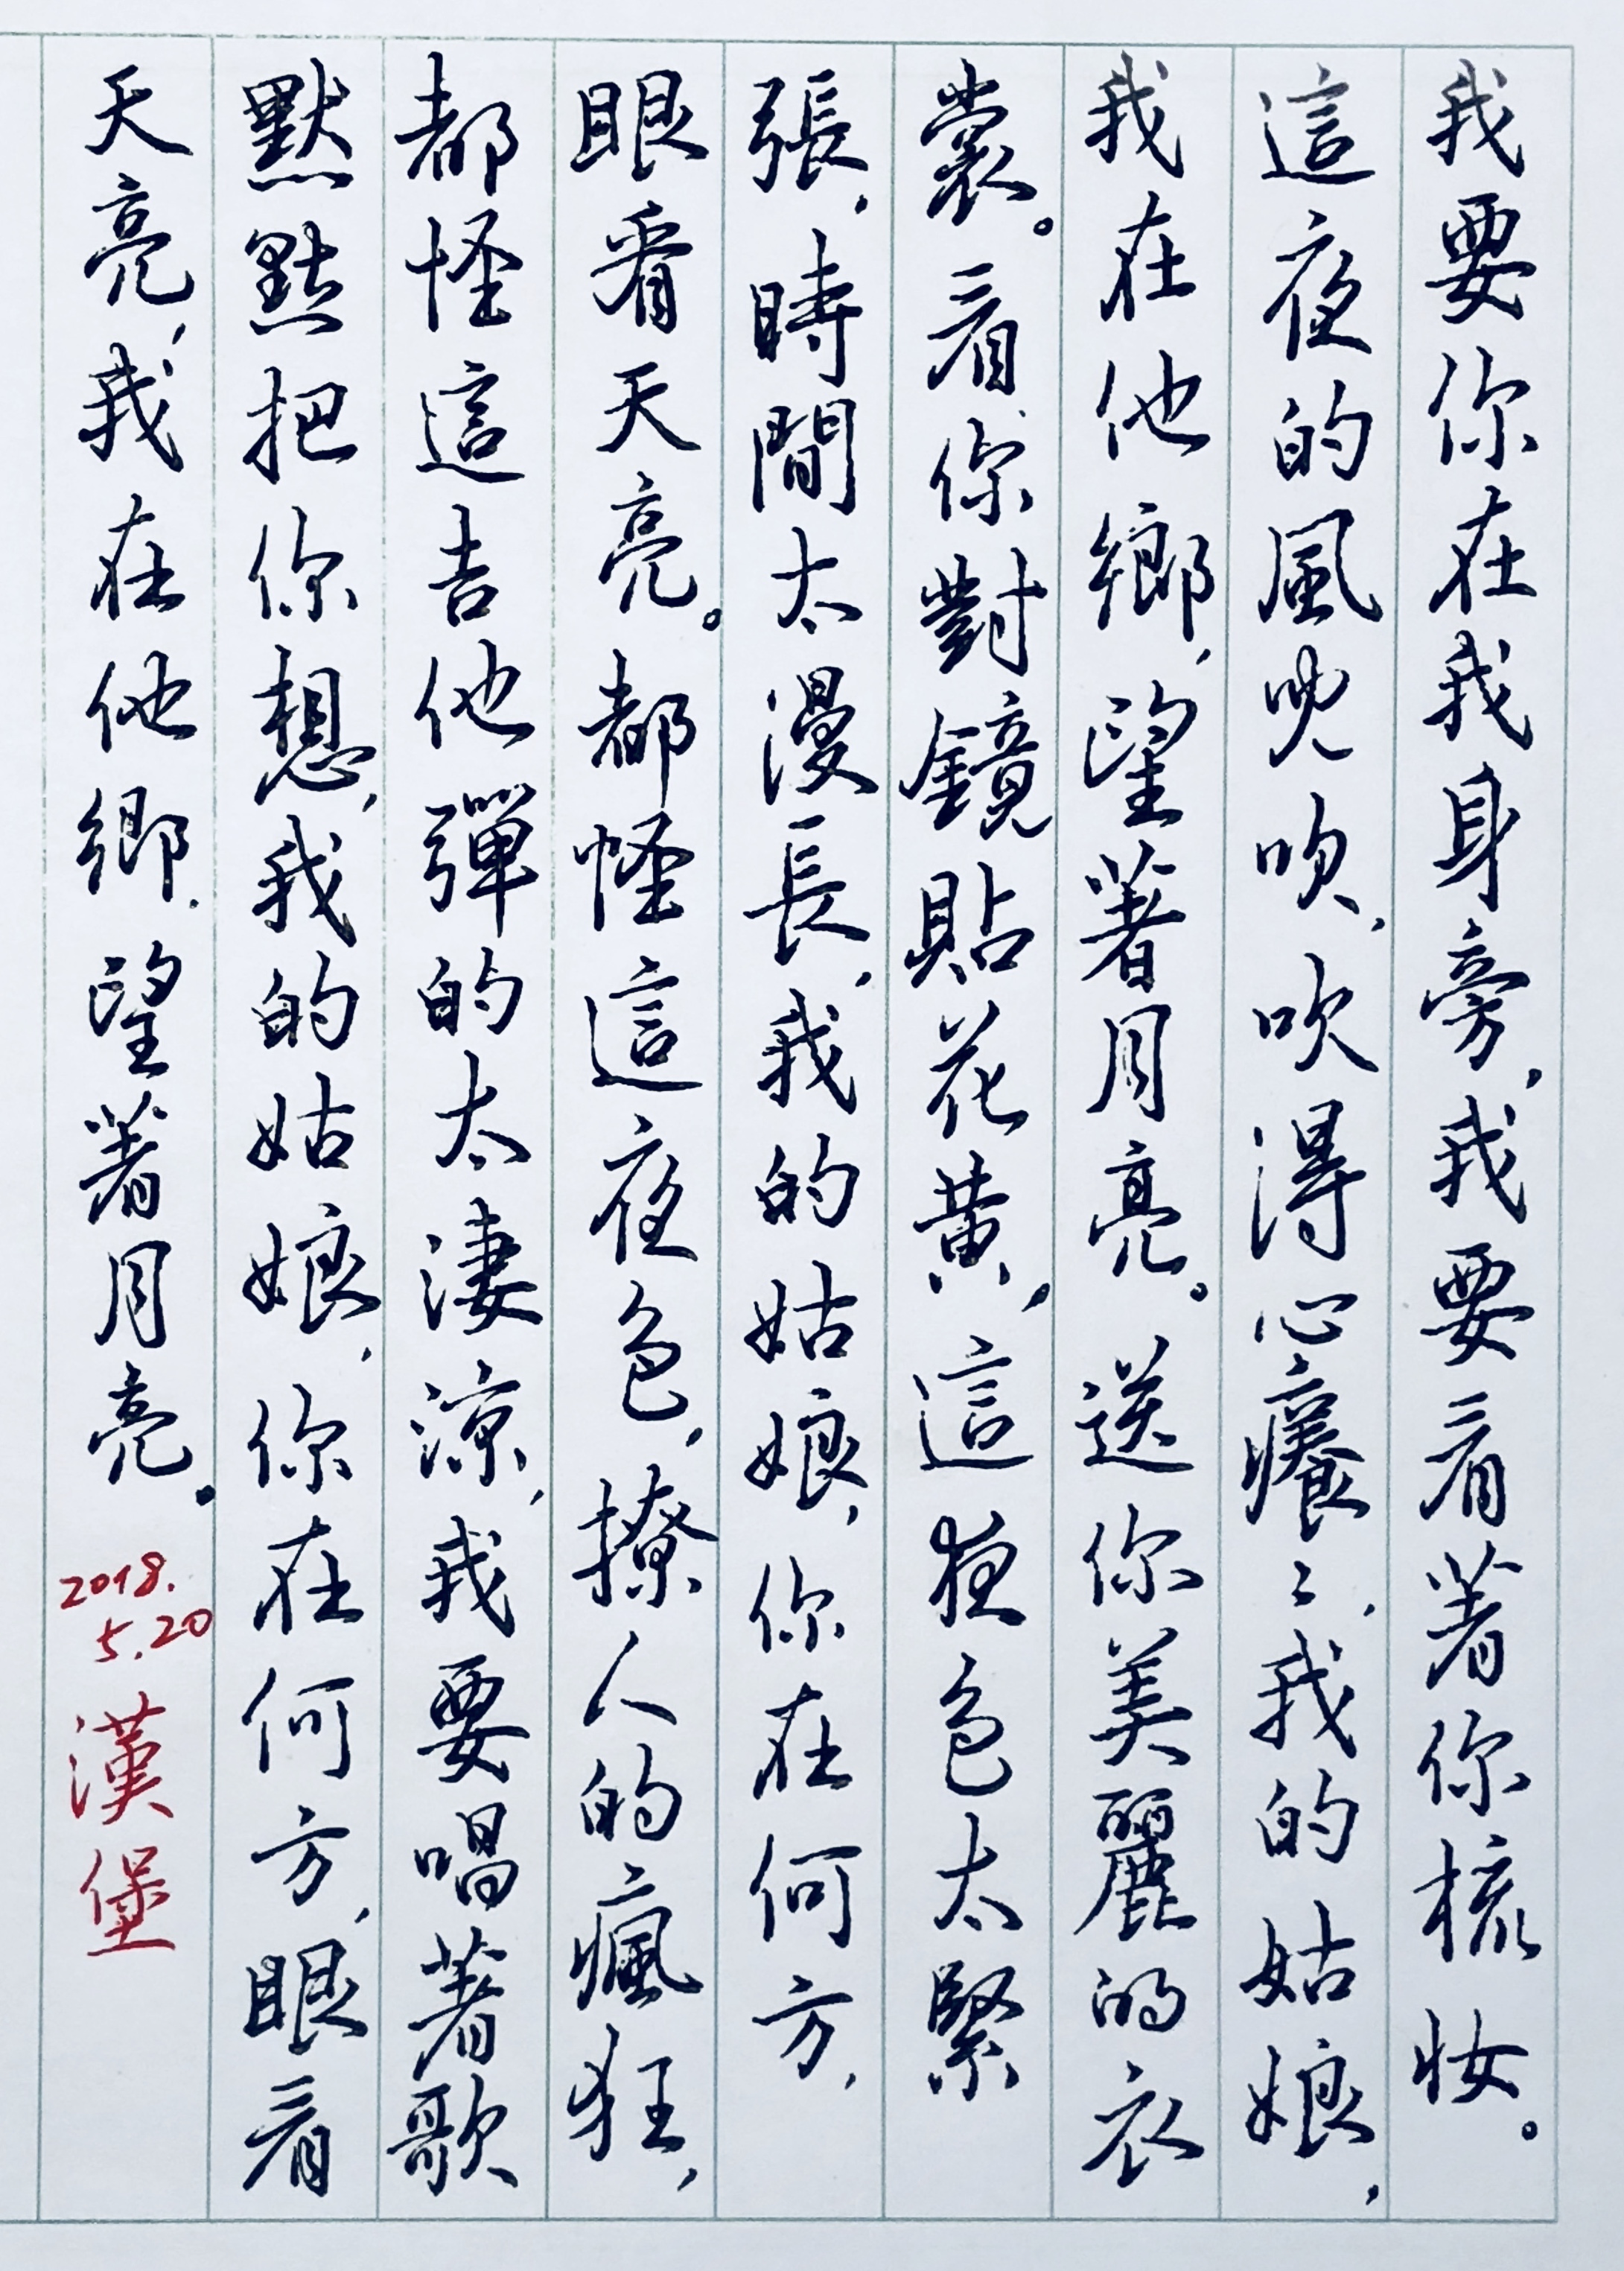 我要你在我身旁，我要看著你梳妝。
這夜的風兒吹，吹得心癢癢，我的姑娘，
我在他鄉，望著月亮。送你美麗的衣
裳。看你對鏡貼花黃，這夜色太緊
張，時間太漫長，我的姑娘，你在何方，
眼看天亮。都怪這夜色，撩人的瘋狂，
都怪這吉他彈的太淒涼，我要唱著歌
默默把你想，我的姑娘，你在何方，眼看
天亮，我在他鄉，望著月亮。
2018.
5.20
漢堡